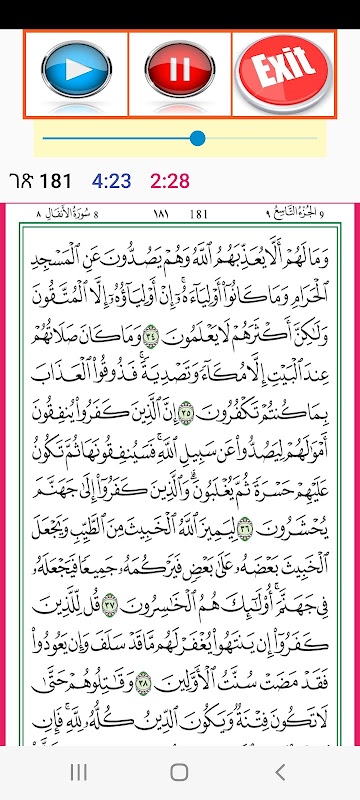 Exit
ገጽ 181 4:23 2:28
٨ سُورَةُ الأَنفَالِ 8 ١٨١ 181 ٩ الجُزْءُ التَّاسِعُ 9
وَمَا لَهُمْ أَلَّا يُعَذِّبَهُمُ ٱللَّهُ وَهُمْ يَصُدُّونَ عَنِ ٱلْمَسْجِدِ
ٱلْحَرَامِ وَمَا كَانُوٓا۟ أَوْلِيَآءَهُۥٓ ۚ إِنْ أَوْلِيَآؤُهُۥٓ إِلَّا ٱلْمُتَّقُونَ
وَلَٰكِنَّ أَكْثَرَهُمْ لَا يَعْلَمُونَ ٣٤ وَمَا كَانَ صَلَاتُهُمْ
عِندَ ٱلْبَيْتِ إِلَّا مُكَآءً وَتَصْدِيَةً ۚ فَذُوقُوا۟ ٱلْعَذَابَ
بِمَا كُنتُمْ تَكْفُرُونَ ٣٥ إِنَّ ٱلَّذِينَ كَفَرُوا۟ يُنفِقُونَ
أَمْوَٰلَهُمْ لِيَصُدُّوا۟ عَن سَبِيلِ ٱللَّهِ ۚ فَسَيُنفِقُونَهَا ثُمَّ تَكُونُ
عَلَيْهِمْ حَسْرَةً ثُمَّ يُغْلَبُونَ ۗ وَٱلَّذِينَ كَفَرُوٓا۟ إِلَىٰ جَهَنَّمَ
يُحْشَرُونَ ٣٦ لِيَمِيزَ ٱللَّهُ ٱلْخَبِيثَ مِنَ ٱلطَّيِّبِ وَيَجْعَلَ
ٱلْخَبِيثَ بَعْضَهُۥ عَلَىٰ بَعْضٍ فَيَرْكُمَهُۥ جَمِيعًا فَيَجْعَلَهُۥ
فِى جَهَنَّمَ ۚ أُو۟لَٰٓئِكَ هُمُ ٱلْخَٰسِرُونَ ٣٧ قُل لِّلَّذِينَ
كَفَرُوٓا۟ إِن يَنتَهُوا۟ يُغْفَرْ لَهُم مَّا قَدْ سَلَفَ وَإِن يَعُودُوا۟
فَقَدْ مَضَتْ سُنَّتُ ٱلْأَوَّلِينَ ٣٨ وَقَٰتِلُوهُمْ حَتَّىٰ
لَا تَكُونَ فِتْنَةٌ وَيَكُونَ ٱلدِّينُ كُلُّهُۥ لِلَّهِ ۚ فَإِنِ